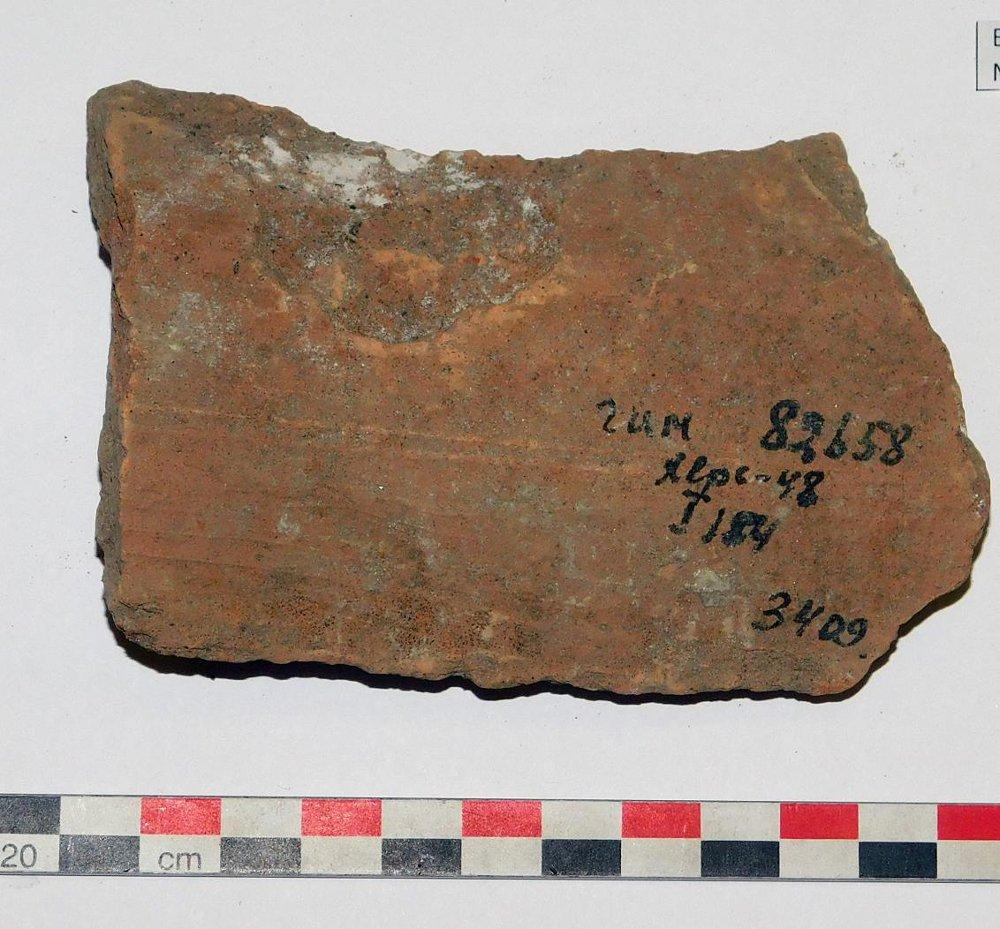 гим 82658
Херс-48
I 184
3409
20 cm